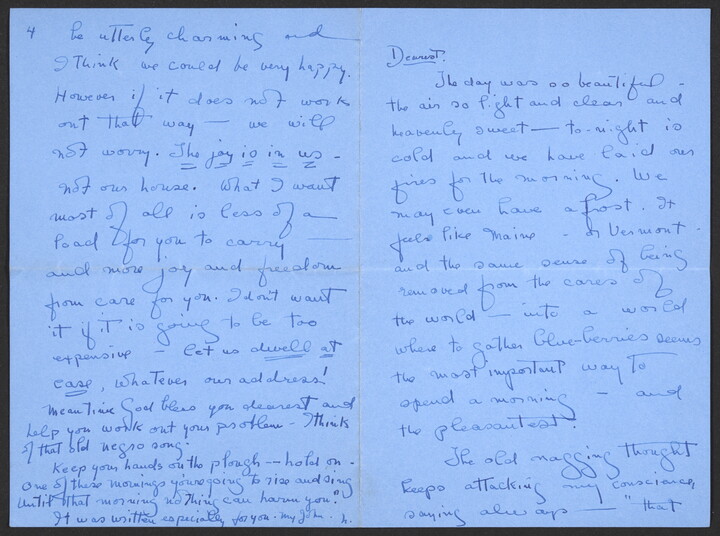 Dearest:
The day was so beautiful -
the air so light and clear and
heavenly sweet — to-night is
cold and we have laid our
fires for the morning. We
may even have a frost. It
feels like Maine - or Vermont -
and the same sense of being
removed from the cares of
the world — into a world
where to gather blue-berries seems
the most important way to
spend a morning — and
the pleasantest.
The old nagging thought
keeps attacking my conscience
saying always — "that
4
be utterly charming and
I think we could be very happy.
However if it does not work
out that way — we will
not worry. The joy is in us -
not our house. What I want
most of all is less of a
load for you to carry —
and more joy and freedom
from care for you. I don't want
it if it is going to be too
expensive - let us dwell at
ease, whatever our address!
Meantime God bless you dearest and
help you work out your problem - I think
of that old negro song:
Keep your hands on the plough — hold on -
One of these mornings you're going to rise and sing
Until that morning nothing can harm you."
It was written especially for you - my John. h.